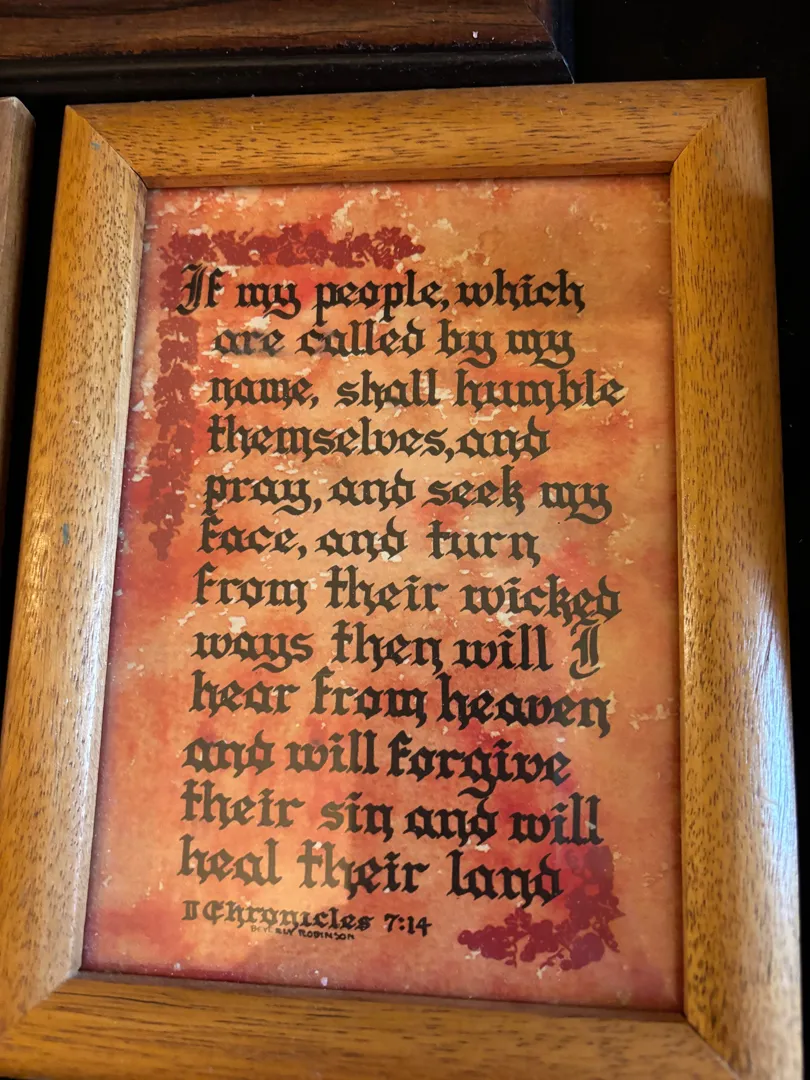 If my people, which
are called by my
name, shall humble
themselves, and
pray, and seek my
face, and turn
from their wicked
ways then will I
hear from heaven
and will forgive
their sin and will
heal their land
II Chronicles 7:14
BEVERLY ROBINSON